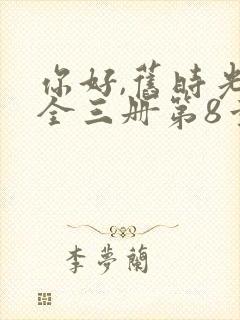 你好,旧時光
全三册第8章
李夢蘭